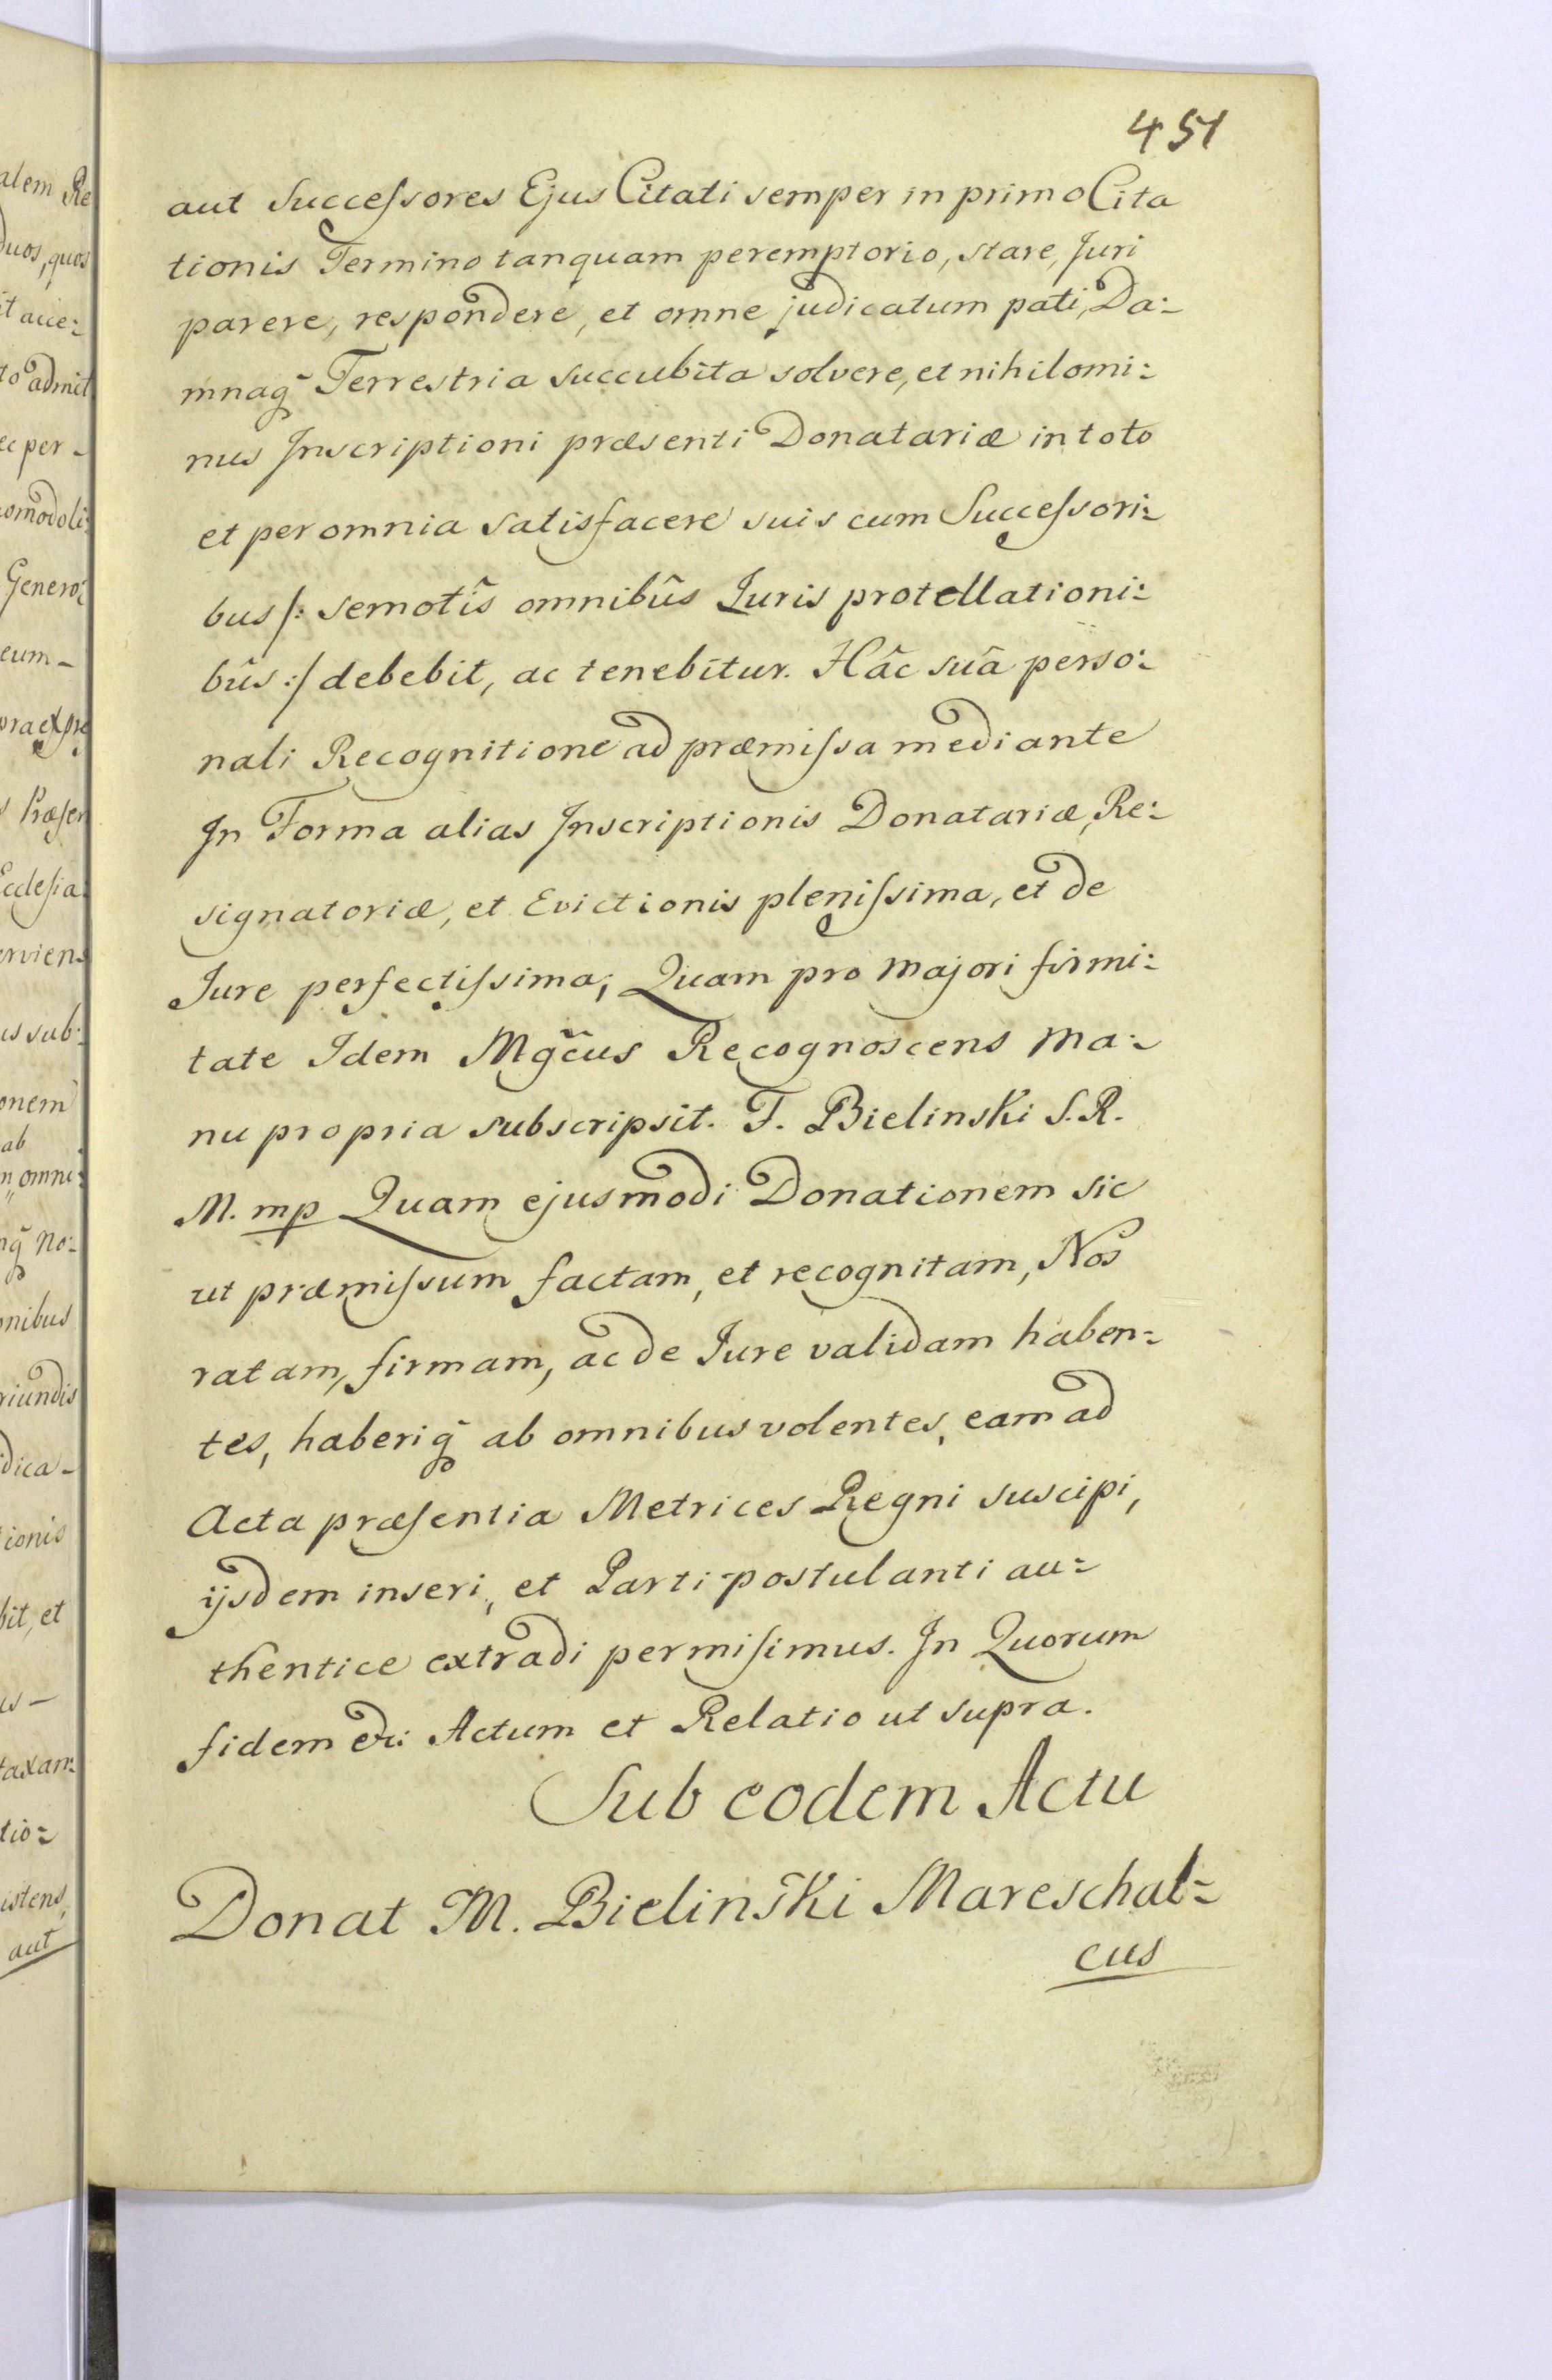 451
aut Succeſsores Ejus Citati semper in primo Cita
tionis Termino tanquam peremptorio, stare, Juri
parere, respondere, et omne judicatum pati, Da:
mnaq̃ Terrestria succubita solvere, et nihilomi:
nus Inscriptioni præsenti Donatariæ in toto
et per omnia satisfacere suis cum Succeſsori:
bus /: semotîs omnibûs Juris protellationi:
bûs :/ debebit, ac tenebitur. Hâc suâ perso:
nali Recognitione ad præmiſsa mediante
In Forma alias Inscriptionis Donatariæ, Re:
signatoriæ, et Evictionis pleniſsima, et de
Jure perfectiſsima; Quam pro majori firmi:
tate Idem Mgc̃us Recognoscens ma:
nu propria subscripsit. F. Bielinski S. R.
M. mp Quam ejusmodi Donationem sic
ut præmiſsum factam, et recognitam, Nos
ratam, firmam, ac de Jure validam haben:
tes, haberiq̃ ab omnibus volentes, eam ad
Acta præſentia Metrices Regni suscipi,
ijsdem inseri, et Parti postulanti au:
thentice extradi permiſimus. In Quorum
fidem etc: Actum et Relatio ut supra.
Sub eodem Actu
Donat M. Bielinski Mareschal:
cus